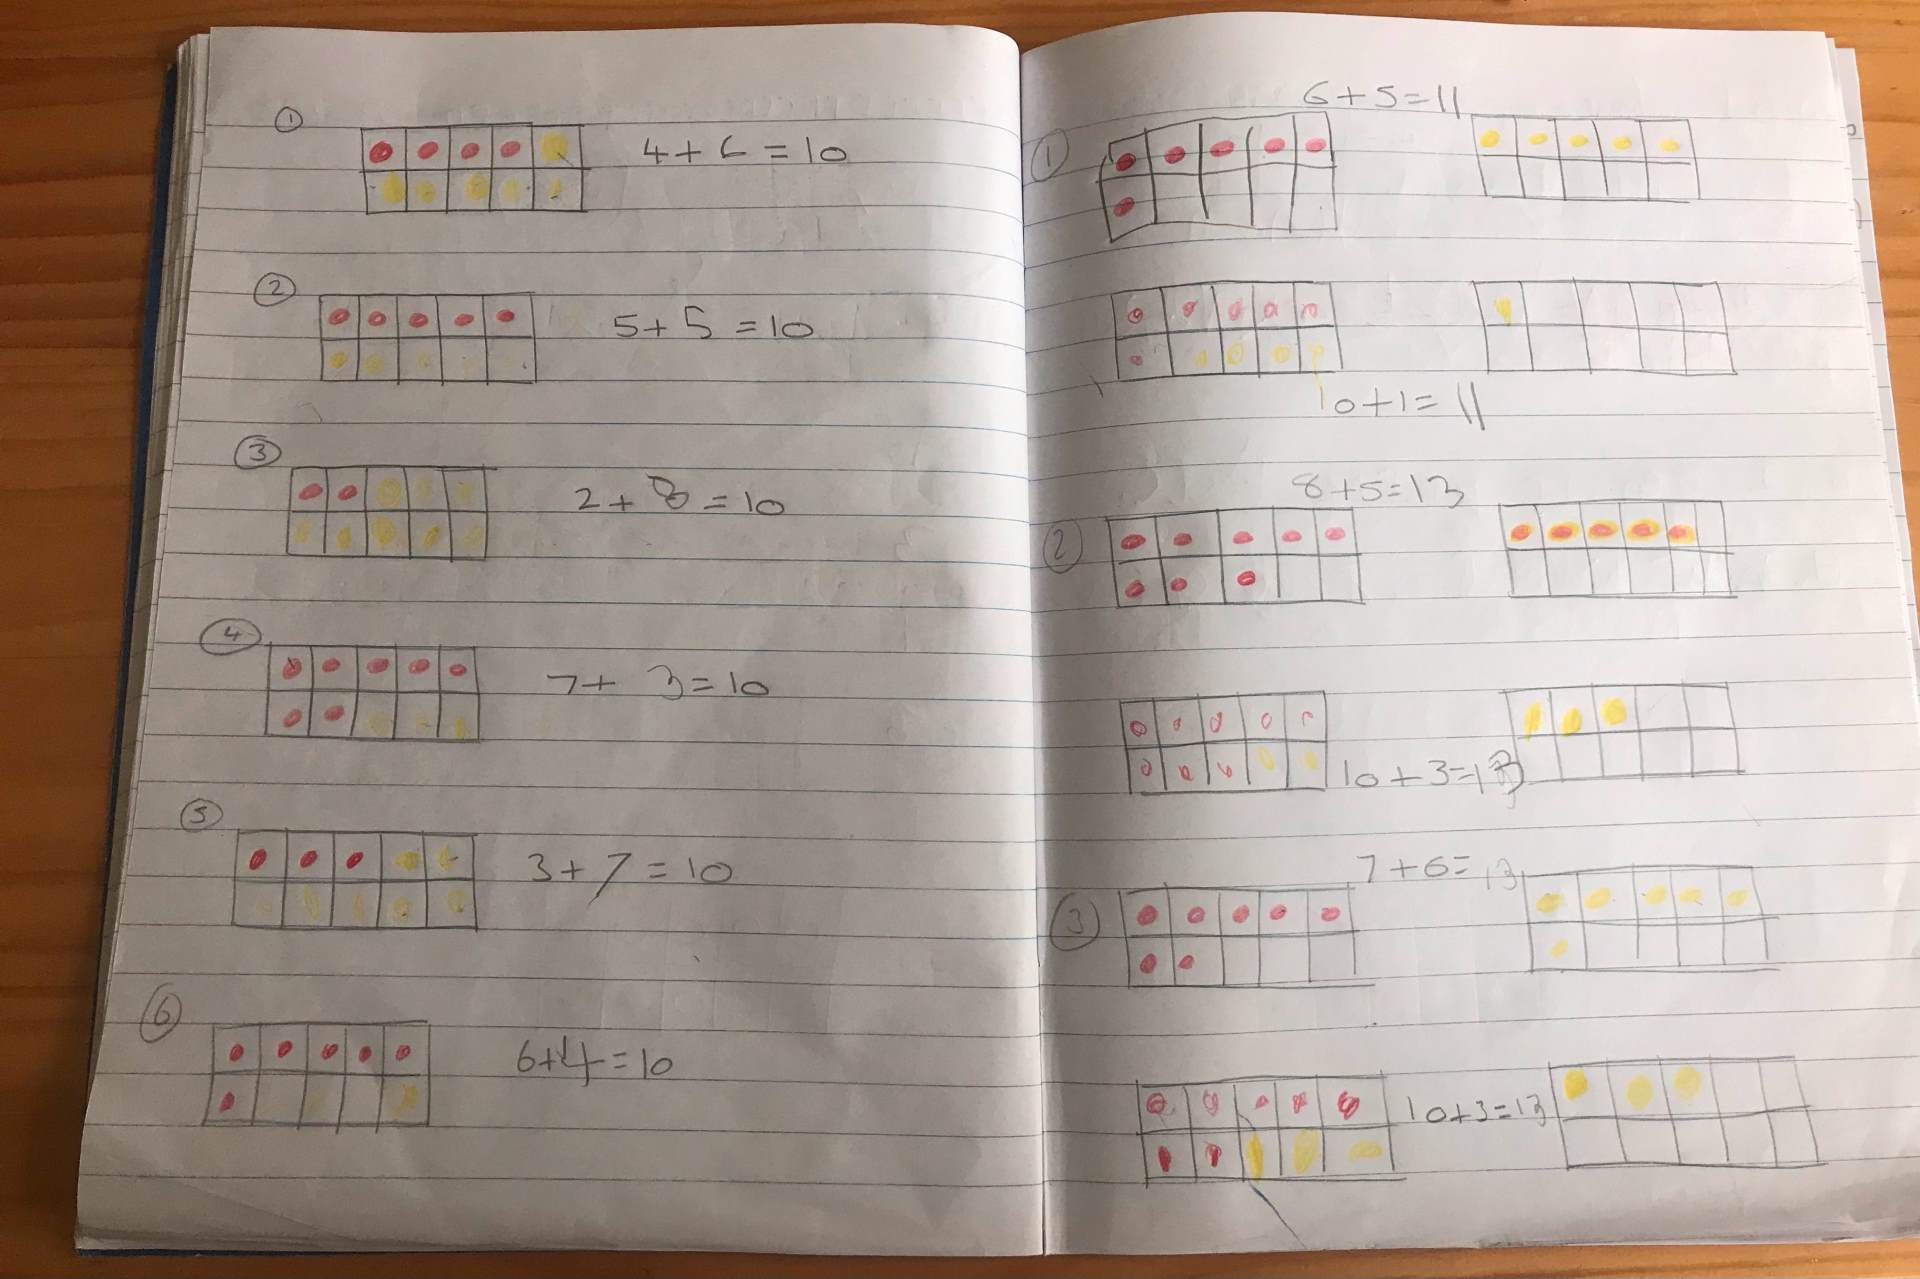 ① 4+6=10
② 5+5=10
③ 2+8=10
④ 7+3=10
⑤ 3+7=10
⑥ 6+4=10
6+5=11
①
10+1=11
8+5=13
②
10+3=13
7+6=13
③
10+3=13